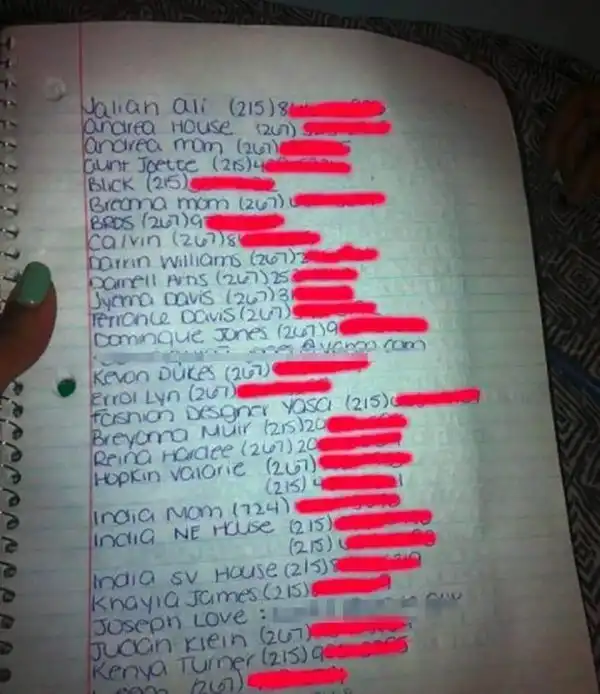 Jalian Ali (215)8
Andrea House (267)
Andrea mom (267)
Aunt Joette (215)4
Blick (215)
Breonna mom (267)
BROS (267)9
Calvin (267)8
Darrin Williams (267)2
Darnell Arns (267)25
Jyenna Davis (267)3
Terrance Davis (267)
Dominque Jones (267)9
@yahoo.com
Kevon Dukes (267)
Errol Lyn (267)
Fashion Designer Yasa (215)
Breyanna Muir (215)20
Reina Hardee (267)20
Hopkin Valorie (267)
(215) 4
India Mom (724)
India NE House (215)
(215)
India SV House (215)8
Khayla James (215)
Joseph Love :
Judan Klein (267)
Kenya Turner (215)9
(267)